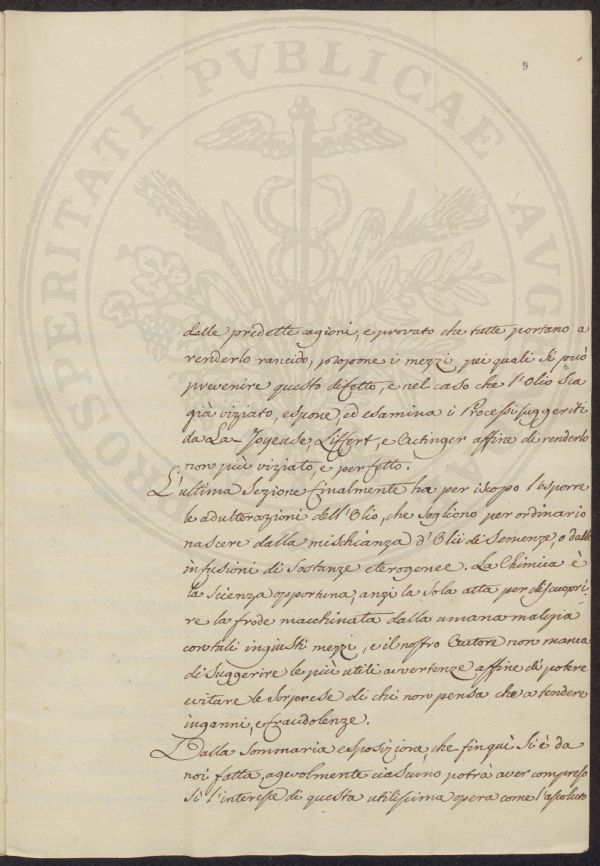 9
PROSPERITATI PVBLICAE AVG
dalle predette cagioni, e provato che tutte portano a
renderlo rancido, propone i mezzi, pei quali si può
prevenire questo difetto, e nel caso che l'Olio sia
già viziato, espone, ed esamina i Processi suggeriti
da La-Joyeuse, Liffort, e Oetinger affine di renderlo
non più viziato, e perfetto.
L'ultima Sezione finalmente ha per iscopo l'esporre
le adulterazioni dell'Olio, che sogliono per ordinario
nascere dalla mischianza d'Olii di Semenze, o dalle
infusioni di Sostanze eterogenee. La Chimica è
la scienza opportuna, anzi la sola atta per discuopri-
re la frode macchinata dalla umana malizia
con tali ingiusti mezzi, e il nostro Autore non manca
di suggerire le più utili avvertenze affine di potere
evitare le sorprese di chi non pensa che a tendere
inganni, e fraudolenze.
Dalla Sommaria esposizione, che finquì si è da
noi fatta, agevolmente ciascuno potrà aver compreso
sì l'interesse di questa utilissima opera come l'assoluto